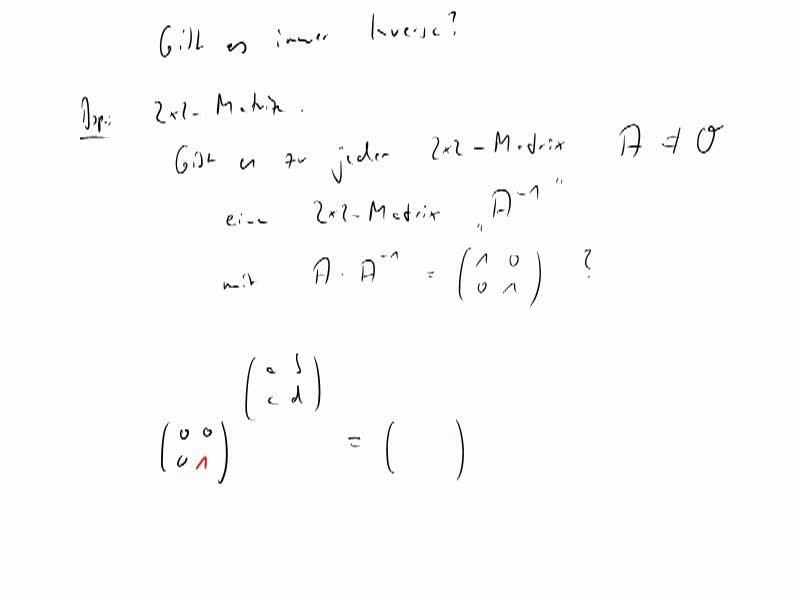 Gibt es immer Inverse?
Bsp.: 2x2-Matrix.
Gibt es zu jeder 2x2-Matrix A ≠ 0
eine 2x2-Matrix „A⁻¹"
mit A · A⁻¹ = (1 0 0 1) ?
(a b c d)
(0 0 0 1) = ( )